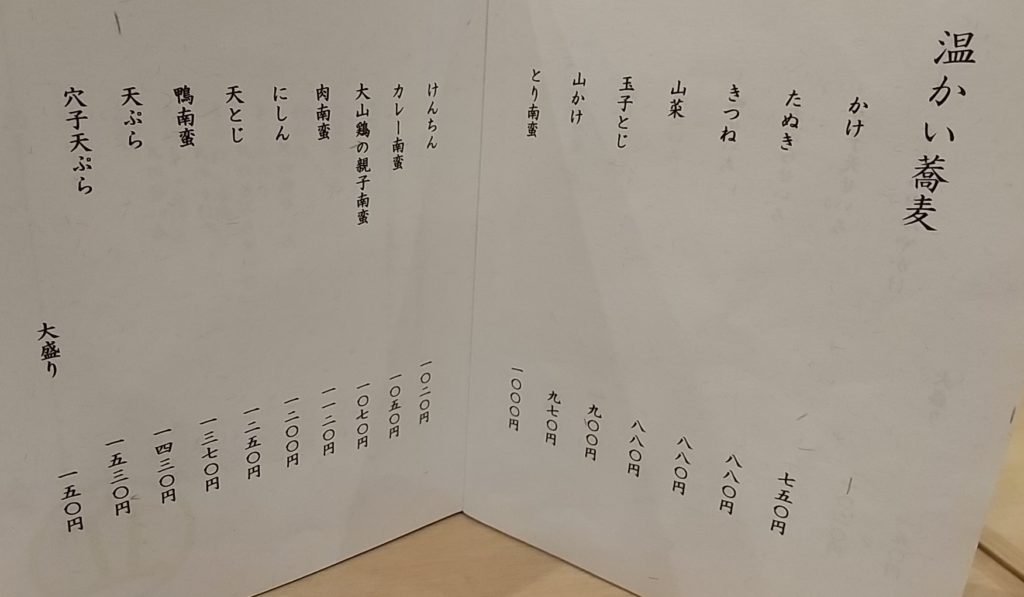 温かい蕎麦
かけ 七五〇円
たぬき 八八〇円
きつね 八八〇円
山菜 八八〇円
玉子とじ 九〇〇円
山かけ 九七〇円
とり南蛮 一〇〇〇円
けんちん 一〇二〇円
カレー南蛮 一〇五〇円
大山鶏の親子南蛮 一〇七〇円
肉南蛮 一一二〇円
にしん 一二〇〇円
天とじ 一二五〇円
鴨南蛮 一三七〇円
天ぷら 一四三〇円
穴子天ぷら 一五三〇円
大盛り 一五〇円